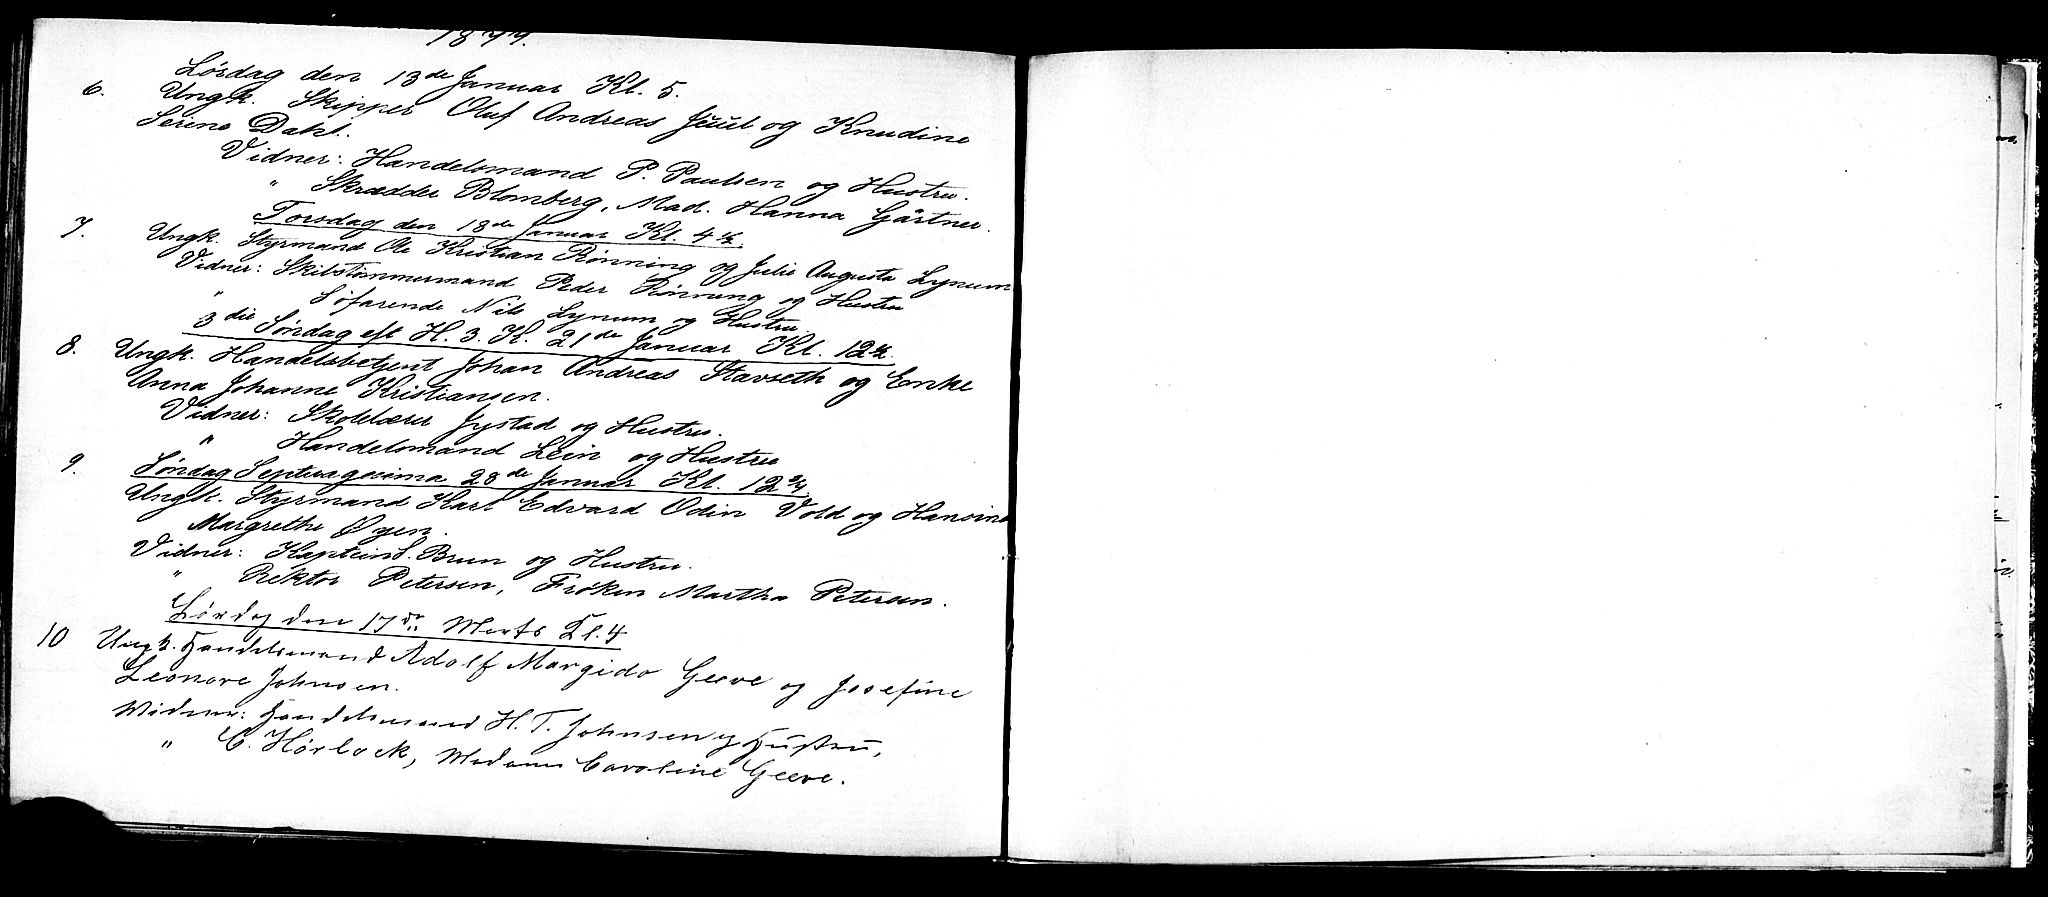 1877.
Lörsdag den 13de Januar Kl. 5.
6. Ungk. Skipper Oluf Andreas Juul og Knudine
Serine Dahl.
Vidner: Handelsmand P. Paulsen og Hustru.
" Skrædder Blomberg, Mad. Hanna Gärtner.
Torsdag den 18de Januar Kl. 4 ½.
7. Ungk. Styrmand Ole Kristian Rönning og Julie Augusta Lynum
Vidner: Skibstömmermand Peder Rönning og Hustru
" Söfarende Nils Lynum og Hustru.
3die Söndag eft. H. 3. K. 21de Januar Kl. 12 ½.
8. Ungk. Handelsbetjent Johan Andreas Stavseth og Enke
Anna Johanne Kristiansen.
Vidner: Skolelærer Jystad og Hustru.
" Handelsmand Lein og Hustru
Söndag Septuagesima 28de Januar Kl. 12 ¾.
9. Ungk. Styrmand Karl Edvard Odin Vold og Hansine
Margrethe Øyen.
Vidner: Kaptein S. Brun og Hustru.
" Rektor Petersen, Fröken Martha Petersen.
Lørdag den 17de Marts Kl. 4
10 Ungk. Handelsmand Adolf Margido Geeve og Josefine
Leonore Johnsen.
Vidner: Handelsmand H. T. Johnsen og Hustru,
" C. Hørlock, Madame Caroline Geeve.